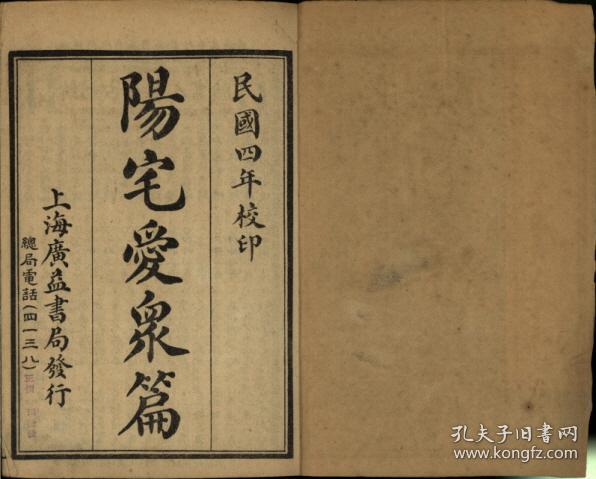 民國四年校印
陽宅愛衆篇
上海廣益書局發行
總局電話(四一三八)
孔夫子旧书网
www.kongfz.com